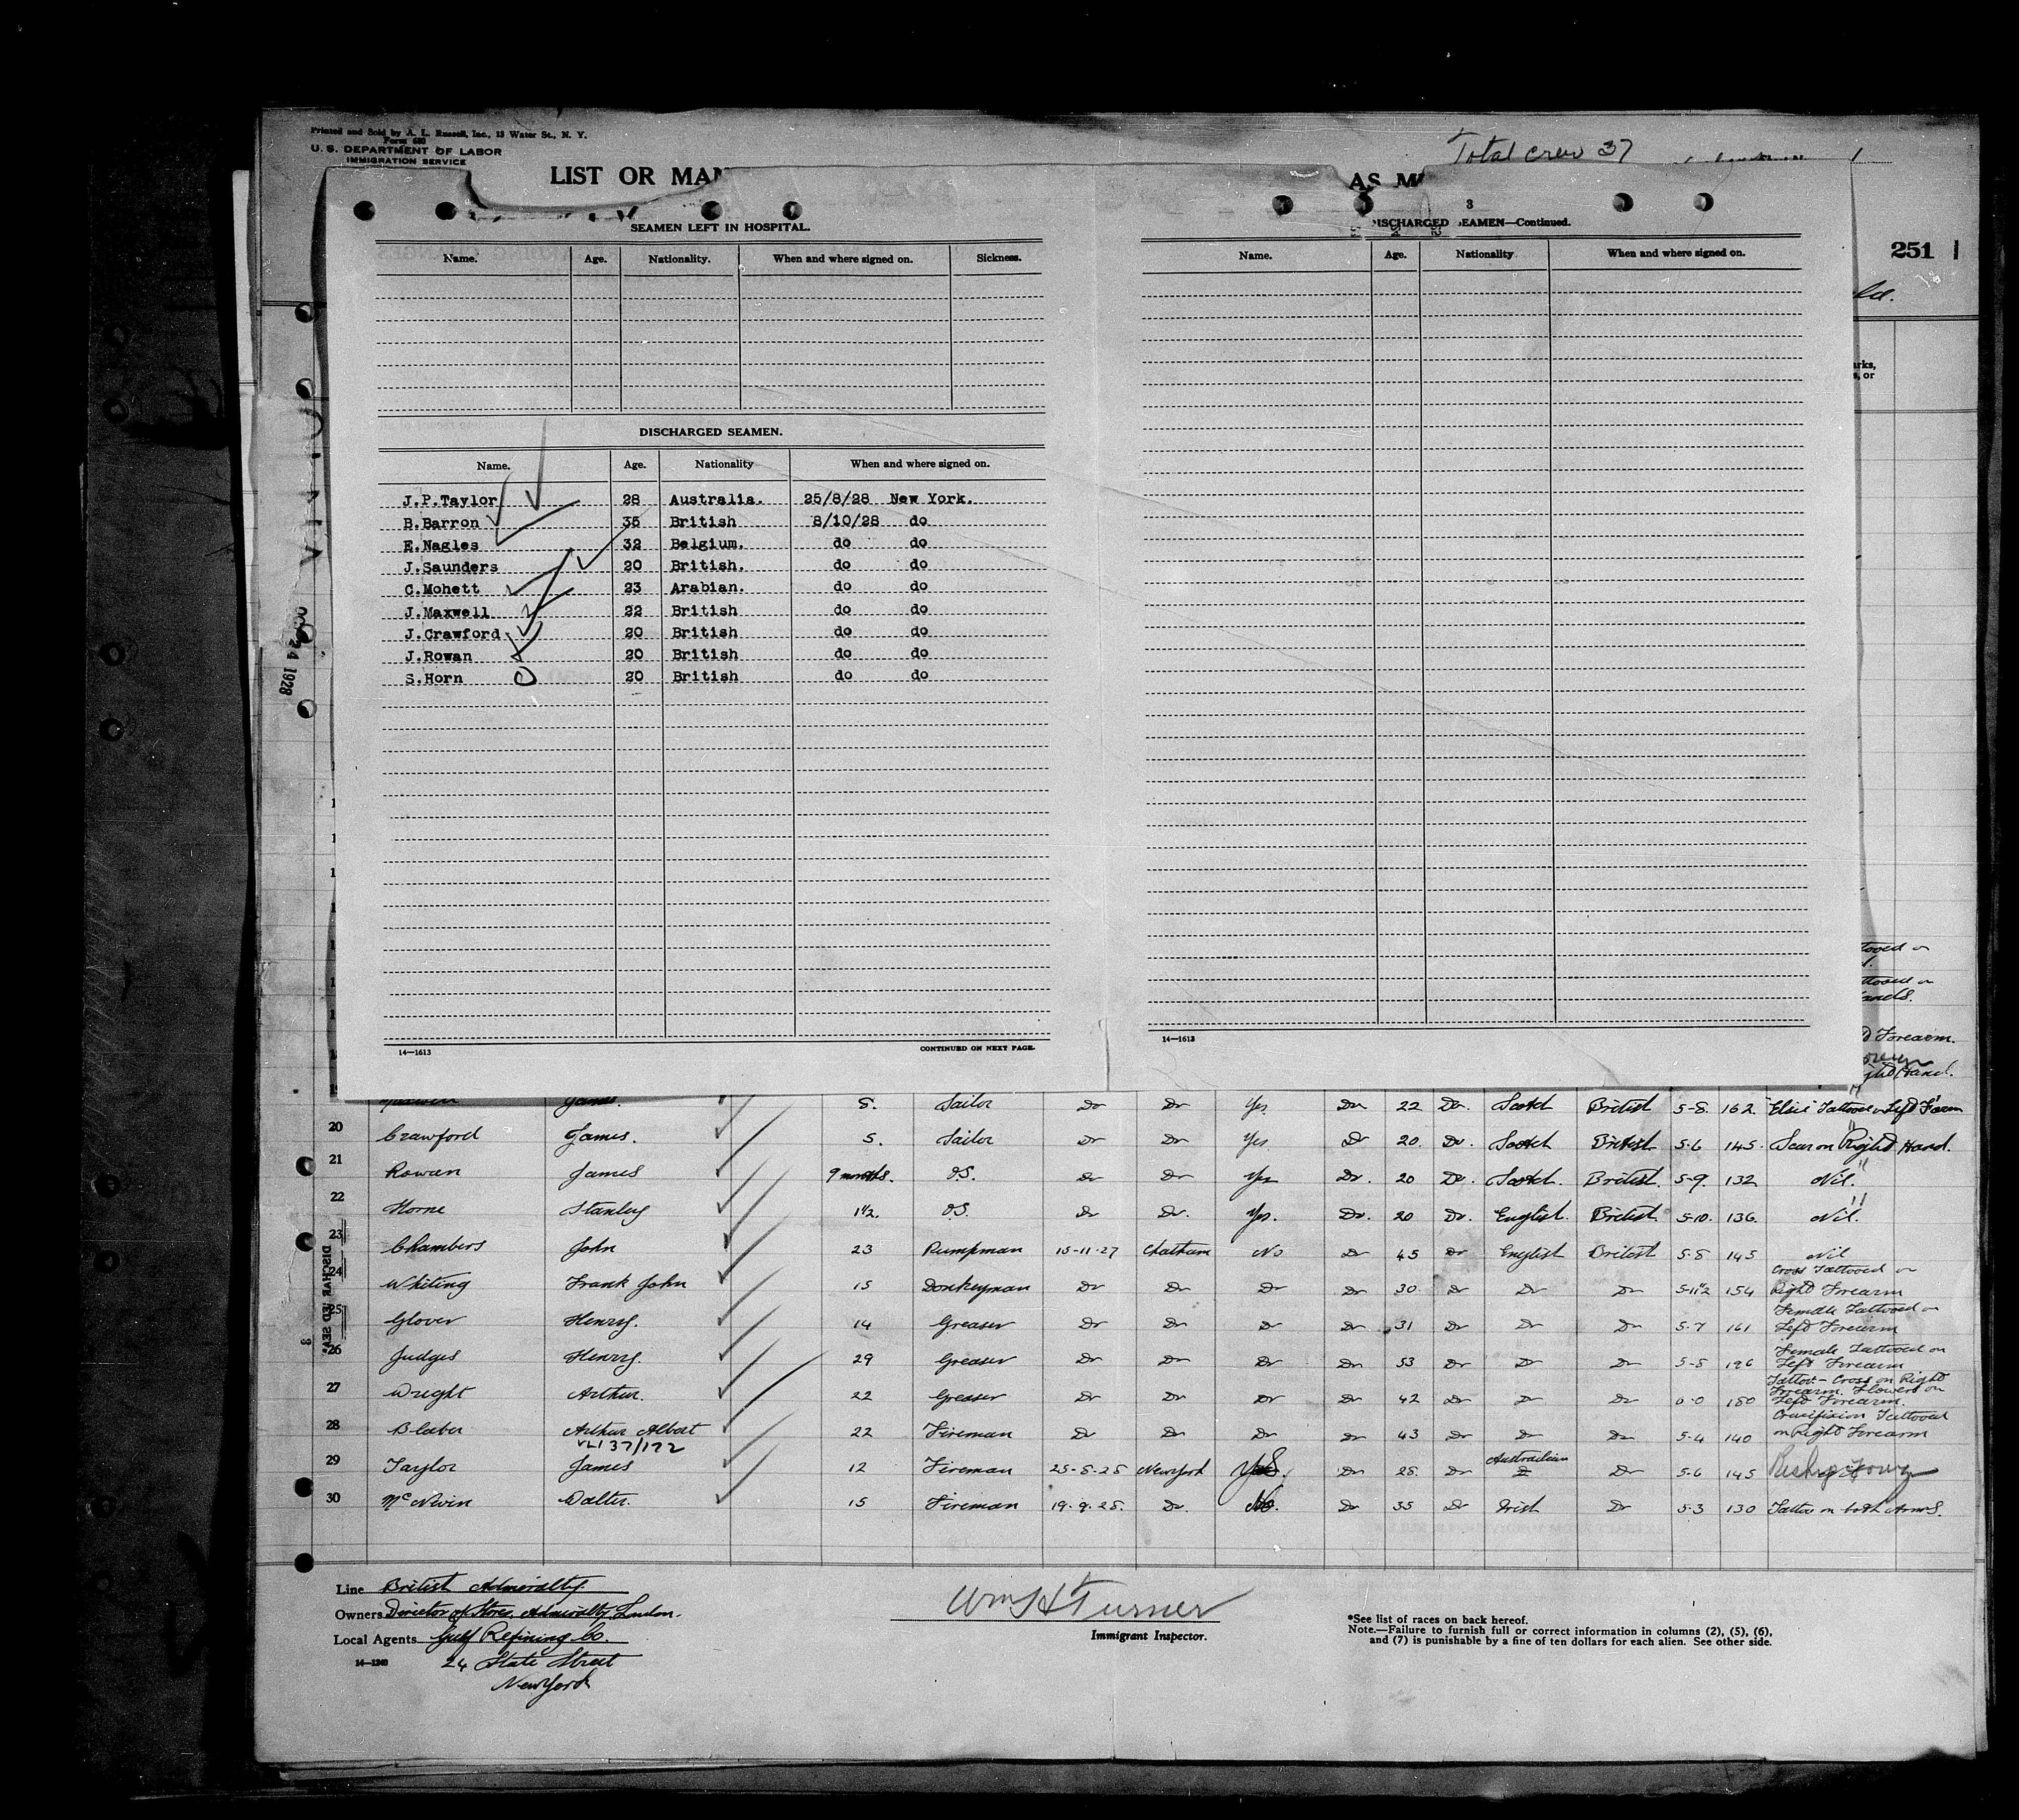 Printed and Sold by A. L. Russell, Inc., 13 Water St., N. Y.
Form 680
U. S. DEPARTMENT OF LABOR
IMMIGRATION SERVICE
Total crew 37
LIST OR MAN
AS M
251
SEAMEN LEFT IN HOSPITAL.
Name. Age. Nationality. When and where signed on. Sickness.
DISCHARGED SEAMEN.
Name. Age. Nationality When and where signed on.
J.P.Taylor 28 Australia. 25/8/28 New York.
B.Barron 35 British 8/10/28 do
E.Nagles 32 Belgium. do do
J.Saunders 20 British. do do
C.Mohett 23 Arabian. do do
J.Maxwell 22 British do do
J.Crawford 20 British do do
J.Rowan 20 British do do
S.Horn 20 British do do
14—1613 CONTINUED ON NEXT PAGE.
3
DISCHARGED SEAMEN—Continued.
Name. Age. Nationality When and where signed on.
14—1613
24 1928
arks,
s, or
tooed on
ttooed on
ands.
d Forearm.
ght Hand.
James. 8. Sailor Do Do Yes Do 22 Do. Scotch British 5-8. 162 "Elsie" Tattooed on Left F'arm
20 Crawford James. 5. Sailor Do Do Yes Do 20. Do. Scotch British 5-6 145. Scar on Right Hand.
21 Rowan James 9 months. O.S. Do Do Yes Do. 20 Do. Scotch. British. 5-9. 132 Nil.
22 Horne Stanley 1 1/2. O.S. Do Do. Yes. Do. 20 Do. English. British. 5-10. 136. Nil.
23 Chambers John 23 Pumpman 15-11-27 Chatham No Do 45 Do English British 5-8 145 Nil
24 Whiting Frank John 15 Donkeyman Do Do Do Do 30 Do Do Do 5-11 1/2 154 Cross Tattooed on Right Forearm
25 Glover Henry. 14 Greaser Do Do Do Do 31 Do Do Do 5-7 161 Female Tattooed on Left Forearm
26 Judges Henry. 29 Greaser Do Do Do Do 53 Do Do Do 5-8 196 Female Tattooed on Left Forearm
27 Wright Arthur. 22 Greaser Do Do Do Do 42 Do Do Do 180 Tattoo - Cross on Right Forearm. Flowers on Left Forearm.
28 Blaber Arthur Albert 22 Fireman Do Do Do Do 43 Do Do Do 5-4 140 Crucifixion Tattooed on Right Forearm
37/172
29 Taylor James 12 Fireman 25-8-28 New York Yes. Do 28. Do Australian Do 5-6 145
30 McNivin Walter. 15 Fireman 19-9-28. Do. No. Do 35 Do Irish Do 5-3 130 Tattoo on both Arms.
Line British Admiralty.
Owners Director of Stores, Admiralty, London.
Local Agents Gulf Refining Co.
14—1240 24 State Street
New York
Wm H Turner
Immigrant Inspector.
*See list of races on back hereof.
Note.—Failure to furnish full or correct information in columns (2), (5), (6),
and (7) is punishable by a fine of ten dollars for each alien. See other side.